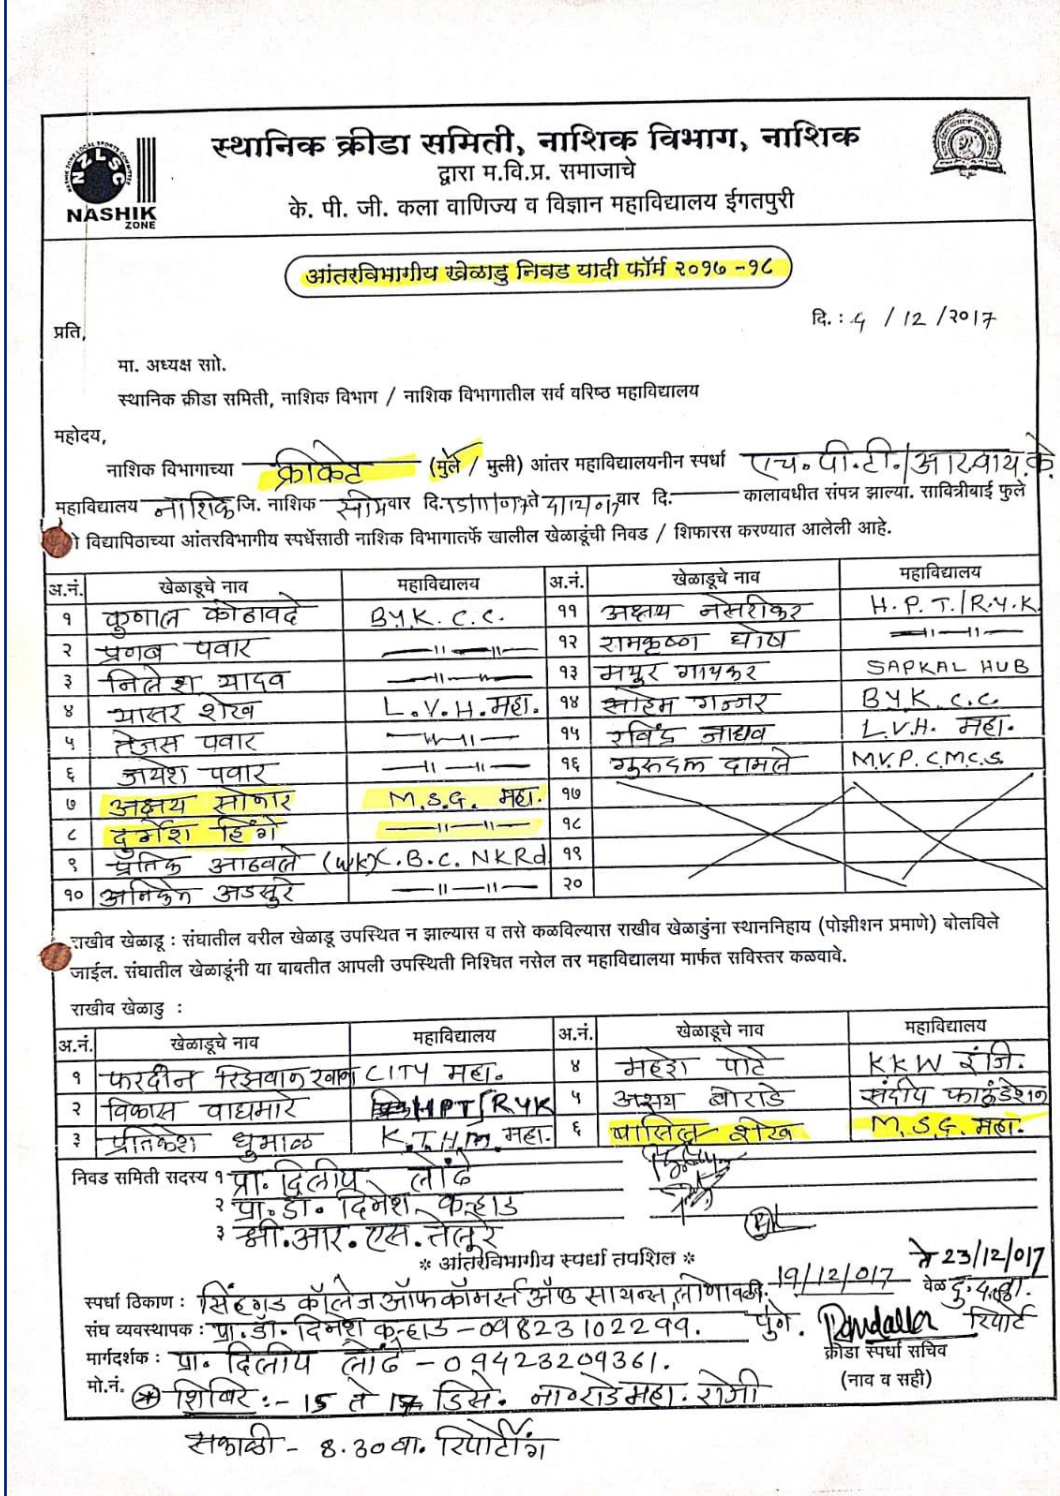 स्थानिक क्रीडा समिती, नाशिक विभाग, नाशिक
द्वारा म.वि.प्र. समाजाचे
के. पी. जी. कला वाणिज्य व विज्ञान महाविद्यालय ईगतपुरी
NZLSC
NASHIK
ZONE
आंतरविभागीय खेळाडु निवड यादी फॉर्म २०१७ -१८
दि. : ५ / 12 / २०17
प्रति,
मा. अध्यक्ष सो.
स्थानिक क्रीडा समिती, नाशिक विभाग / नाशिक विभागातील सर्व वरिष्ठ महाविद्यालय
महोदय,
नाशिक विभागाच्या क्रीकेट (मुले / मुली) आंतर महाविद्यालयनीन स्पर्धा एच.पी.टी./आरवाय.के
महाविद्यालय नाशिक जि. नाशिक सोम वार दि. ते वार दि. कालावधीत संपन्न झाल्या. सावित्रीबाई फुले
विद्यापिठाच्या आंतरविभागीय स्पर्धेसाठी नाशिक विभागातर्फे खालील खेळाडूंची निवड / शिफारस करण्यात आलेली आहे.
अ.नं. खेळाडूचे नाव महाविद्यालय अ.नं. खेळाडूचे नाव महाविद्यालय
१ कुणाल कोठावदे B.Y.K. C.C. ११ अक्षय नसेरीकर H.P.T./R.Y.K.
२ प्रणव पवार —॥—॥— १२ रामकृष्ण घोष —॥—॥—
३ नितेश यादव —॥—॥— १३ मयुर गायकर SAPKAL HUB
४ यासर शेख L.V.H. महा. १४ साहिम गज्जर B.Y.K. C.C.
५ तेजस पवार —॥—॥— १५ रविंद्र जाधव L.V.H. महा.
६ जयेश पवार —॥—॥— १६ गुरुदत्त दामले M.V.P. C.M.C.S.
७ अक्षय सोनार M.S.G. महा. १७
८ दुर्गेश हिंगे —॥—॥— १८
९ प्रतिक आढवले (WK) C.B.C. NKRd १९
१० अनिकेत अडसुरे —॥—॥— २०
राखीव खेळाडू : संघातील वरील खेळाडू उपस्थित न झाल्यास व तसे कळविल्यास राखीव खेळाडुंना स्थाननिहाय (पोझीशन प्रमाणे) बोलविले
जाईल. संघातील खेळाडूंनी या बाबतीत आपली उपस्थिती निश्चित नसेल तर महाविद्यालया मार्फत सविस्तर कळवावे.
राखीव खेळाडु :
अ.नं. खेळाडूचे नाव महाविद्यालय अ.नं. खेळाडूचे नाव महाविद्यालय
१ फरदीन रिझवान खान CITY महा. ४ महेश पोटे KKW इंजि.
२ विकास वाघमारे HPT/RYK ५ अक्षय बोराडे संदीप फाऊंडेशन
३ प्रतिकेश धुमाळ K.T.H.M. महा. ६ वासिल शेख M.S.G. महा.
निवड समिती सदस्य १ प्रा. दिलीप लोंढे
२ प्रा. डॉ. दिनेश कऱ्हाड
३ श्री.आर.एस.तेलुरे
* आंतरविभागीय स्पर्धा तपशिल *
ते 23/12/017
स्पर्धा ठिकाण : सिंहगड कॉलेज ऑफ कॉमर्स अँण्ड सायन्स, लोणावळा. 19/12/017 वेळ दु.
संघ व्यवस्थापक : प्रा. डॉ. दिनेश कऱ्हाड - 09823102299. पुणे. रिपोर्ट
मार्गदर्शक : प्रा. दिलीप लोंढे - 09423209361. क्रीडा स्पर्धा सचिव
मो.नं. (नाव व सही)
* शिबिर :- 15 ते 17 डिसे. रोजी
सकाळी - 8.30 वा. रिपोर्टींग